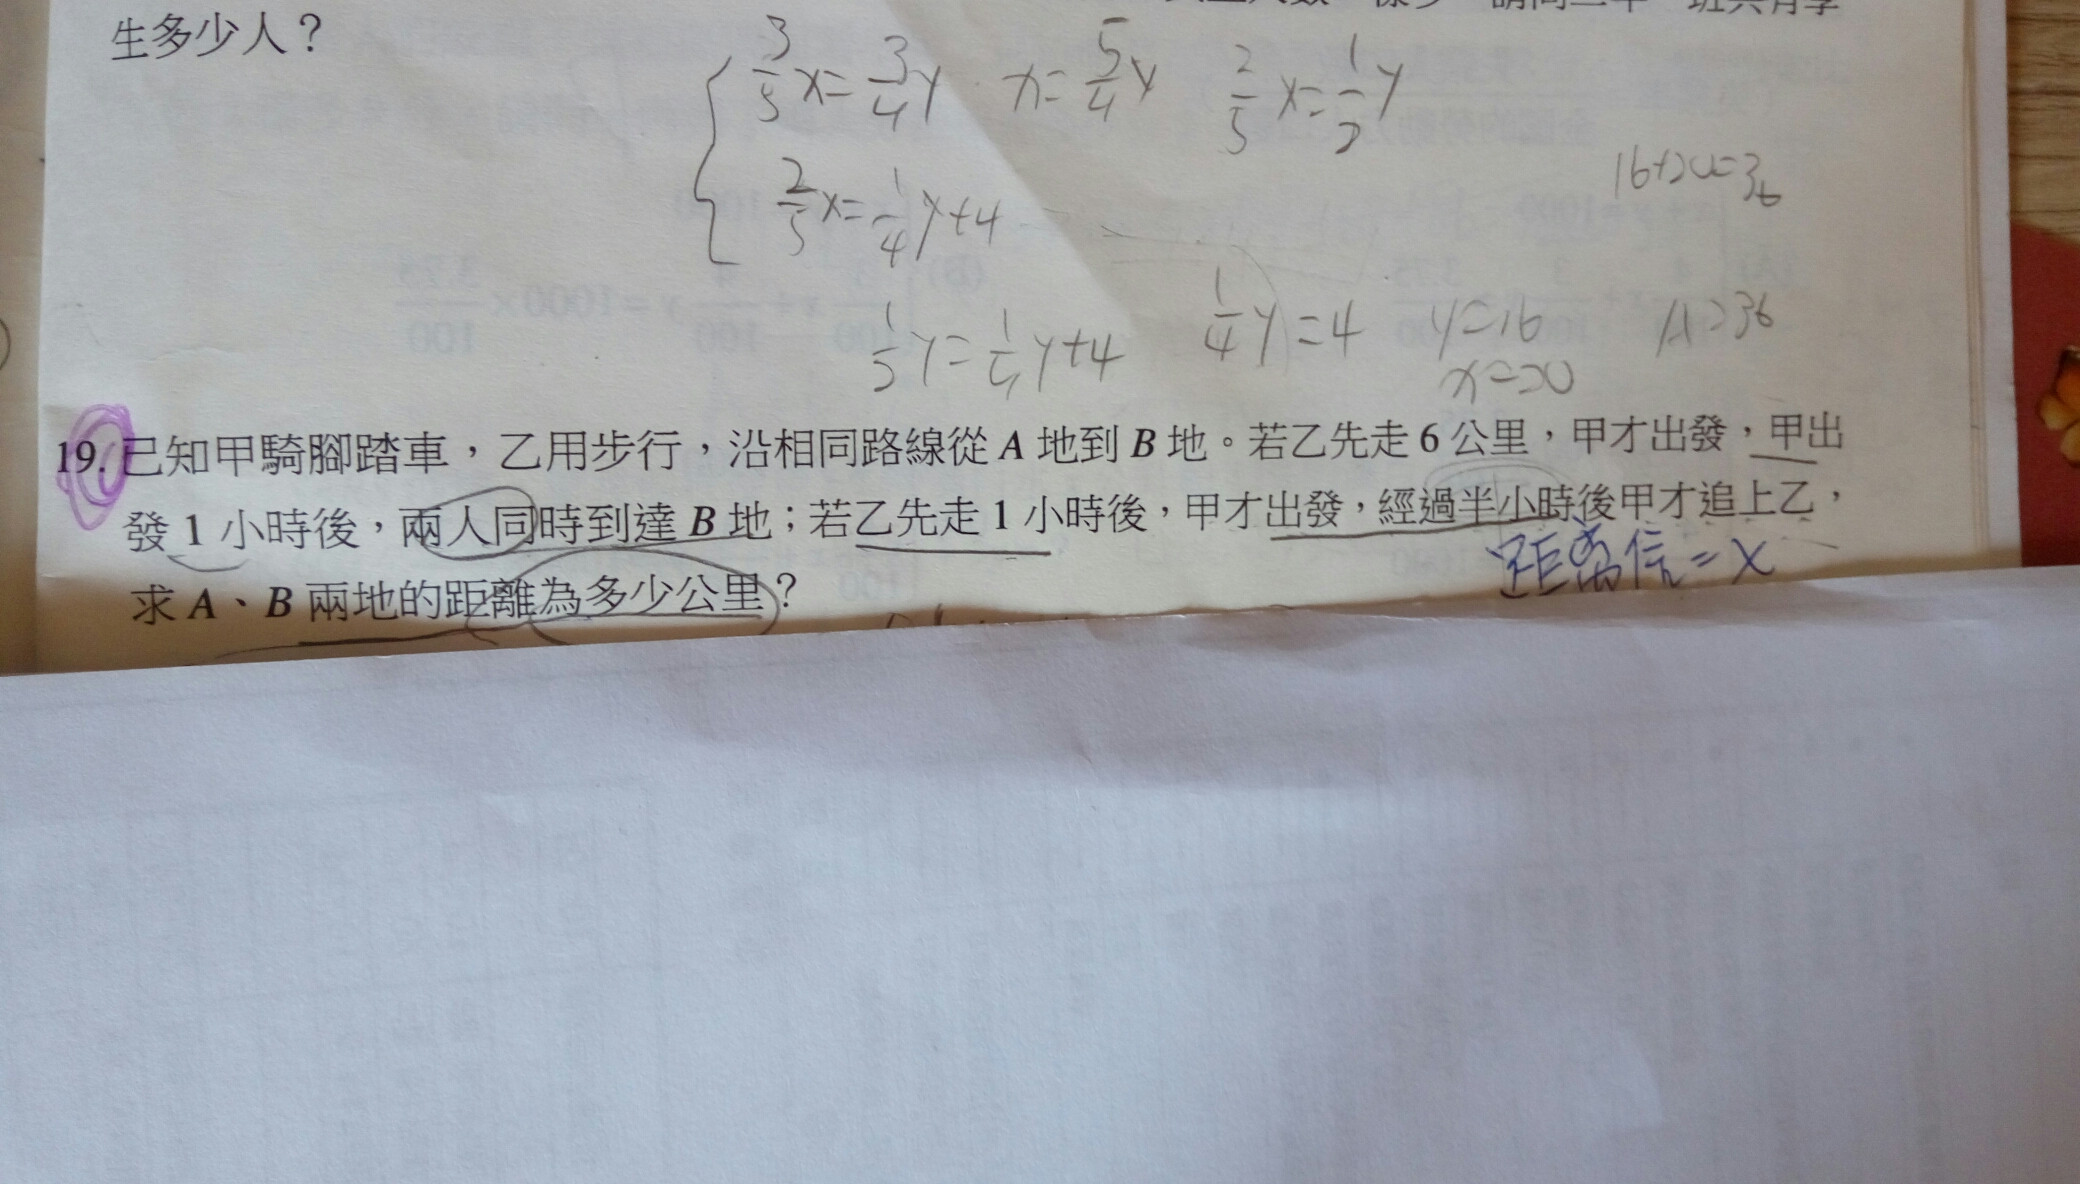 生多少人？
3/5x=3/4y x=5/4y 2/5x=1/2y
2/5x=1/4y+4
16+20=36
1/2y=1/4y+4 1/4y=4 y=16 A=36
x=20
19.已知甲騎腳踏車，乙用步行，沿相同路線從 A 地到 B 地。若乙先走 6 公里，甲才出發，甲出
發 1 小時後，兩人同時到達 B 地；若乙先走 1 小時後，甲才出發，經過半小時後甲才追上乙，
距離信=x
求 A、B 兩地的距離為多少公里？